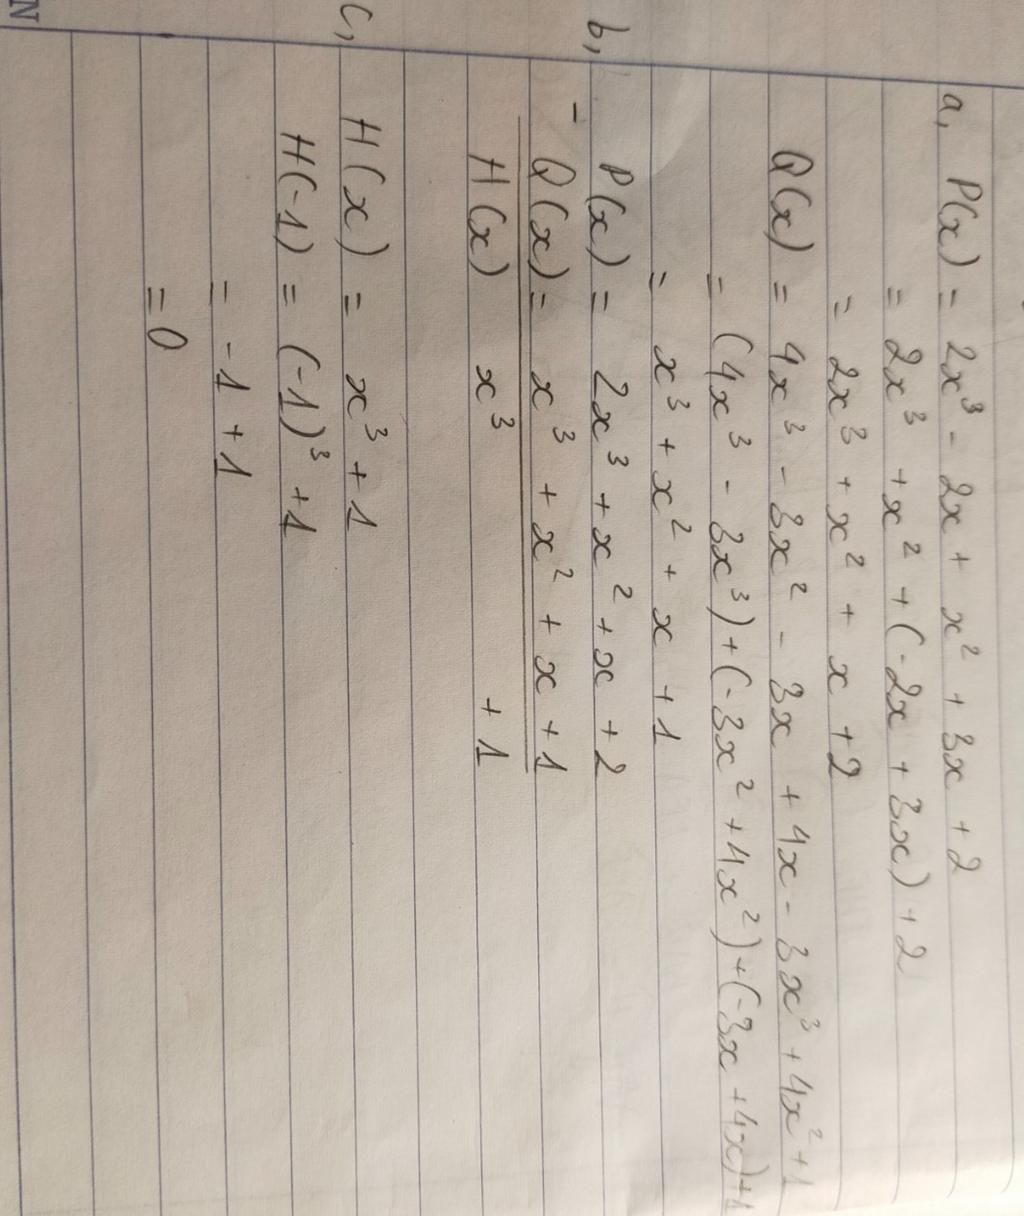 a, P(x) = 2x³ - 2x + x² + 3x + 2
= 2x³ + x² + (-2x + 3x) + 2
= 2x³ + x² + x + 2
Q(x) = 4x³ - 3x² - 3x + 4x - 3x³ + 4x² + 1
= (4x³ - 3x³) + (-3x² + 4x²) + (-3x + 4x) + 1
= x³ + x² + x + 1
b, P(x) = 2x³ + x² + x + 2
- Q(x) = x³ + x² + x + 1
H(x) x³ + 1
c, H(x) = x³ + 1
H(-1) = (-1)³ + 1
= -1 + 1
= 0
N